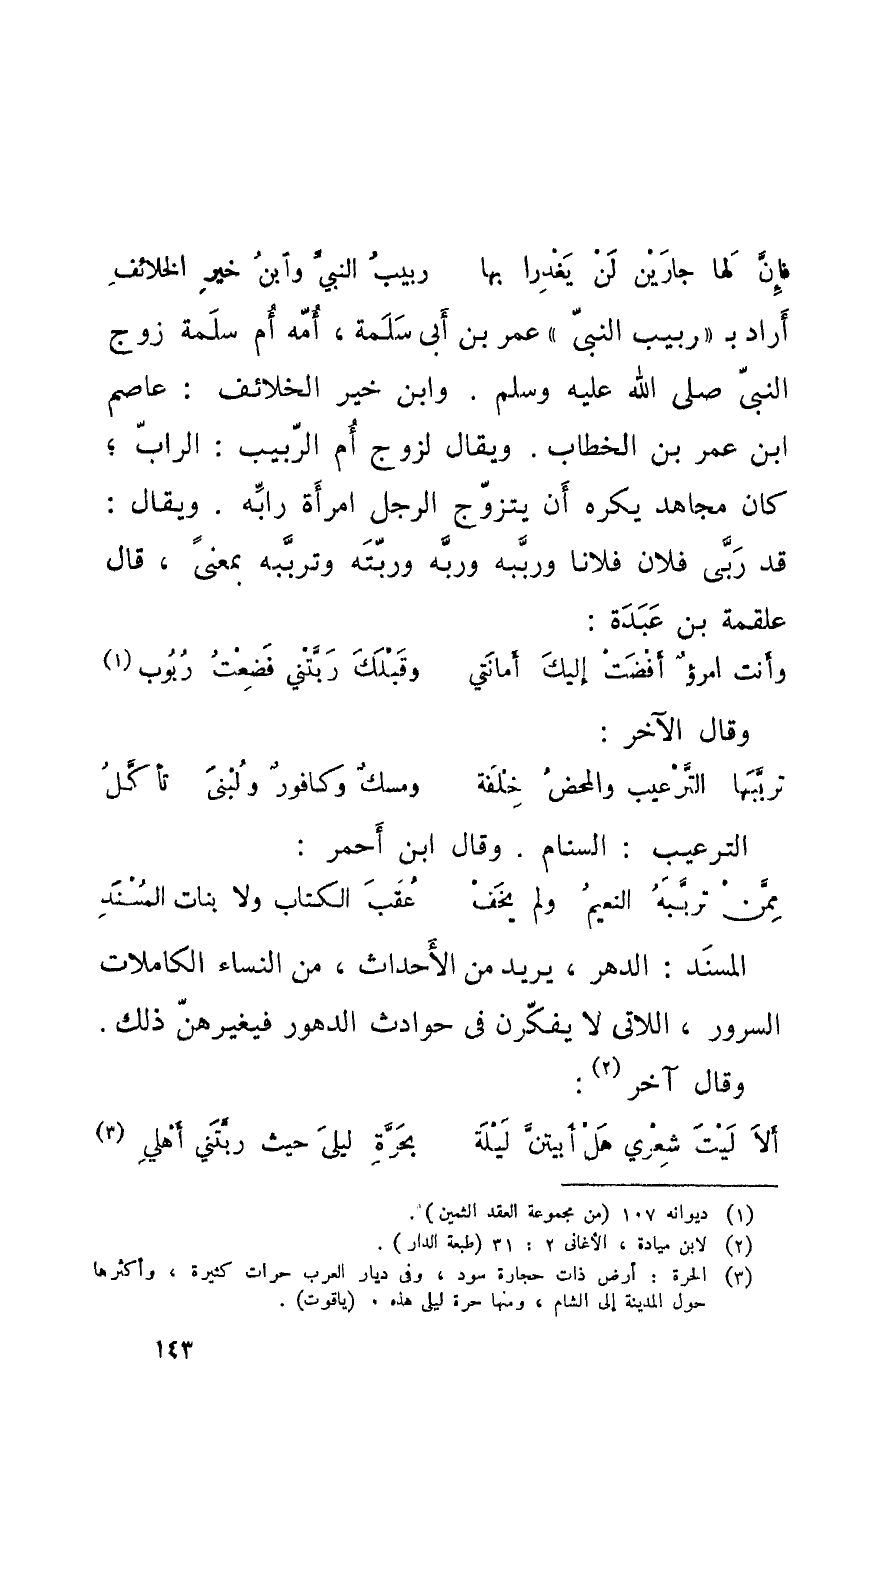 فإِنَّ لَها جارَيْن لَنْ يَغْدِرا بها ربيبُ النبيِّ وآبنُ خيرِ الخلائفِ
أَراد بـ «ربيب النبيّ» عمر بن أَبى سَلَمة ، أُمّه أُم سلَمة زوج
النبىّ صلى الله عليه وسلم . وابن خير الخلائف : عاصم
ابن عمر بن الخطاب . ويقال لزوج أُم الرّبيب : الرابّ ؛
كان مجاهد يكره أَن يتزوّج الرجل امرأَة رابِّه . ويقال :
قد رَبَّى فلان فلانا وربَّبه وربَّه وربّتَه وتربَّبه بمعنىً ، قال
علقمة بن عَبَدَة :
وأنت امرؤٌ أفْضَتْ إليكَ أمانَتي وقَبْلَكَ رَبَّتْني فَضِعْتُ رُبُوب (١)
وقال الآخر :
تربَّبَها التَّرْعيب والمحضُ خِلْفَة ومسكٌ وكافورٌ ولُبْنىَ تأكَّلُ
الترعيب : السنام . وقال ابن أَحمر :
مِمَّنْ تربَّبَهُ النعيمُ ولم يَخَفْ عُقَبَ الكتاب ولا بنات المُسْنَدِ
المسنَد : الدهر ، يريد من الأَحداث ، من النساء الكاملات
السرور ، اللاتى لا يفكّرن فى حوادث الدهور فيغيرهنّ ذلك .
وقال آخر (٢) :
ألاَ لَيْتَ شِعْري هَلْ أبيتنَّ لَيْلَة بحَرَّةِ ليلىَ حيث ربَّتَني أهْلي (٣)
(١) ديوانه ١٠٧ (من مجموعة العقد الثمين) .
(٢) لابن ميادة ، الأغانى ٢ : ٣١ (طبعة الدار) .
(٣) الحرة : أرض ذات حجارة سود ، وفى ديار العرب حرات كثيرة ، وأكثرها
حول المدينة إلى الشام ، ومنها حرة ليلى هذه . (ياقوت) .
١٤٣